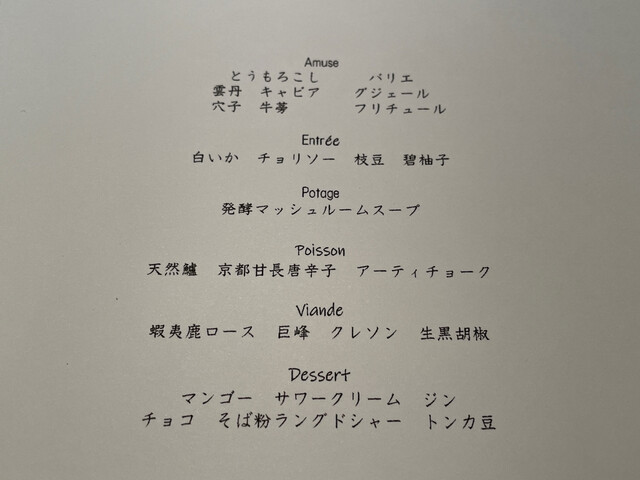 Amuse
とうもろこし　バリエ
雲丹　キャビア　グジェール
穴子　牛蒡　フリチュール
Entrée
白いか　チョリソー　枝豆　碧柚子
Potage
発酵マッシュルームスープ
Poisson
天然鱸　京都甘長唐辛子　アーティチョーク
Viande
蝦夷鹿ロース　巨峰　クレソン　生黒胡椒
Dessert
マンゴー　サワークリーム　ジン
チョコ　そば粉ラングドシャー　トンカ豆